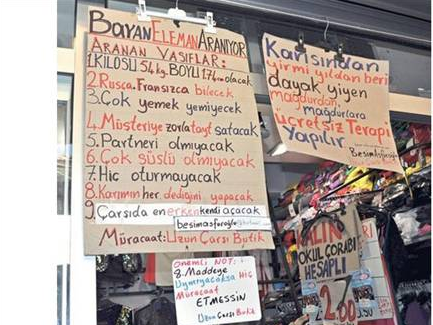 BAYAN ELEMAN ARANIYOR
ARANAN VASIFLAR:
1.KILOSU 54kg. BOYU 1.74m olacak
2.Rusça. Fransızca bilecek
3.Çok yemek yemiyecek
4.Müşteriye zorla tayt satacak
5.Partneri olmıyacak
6.Çok süslü olmıyacak
7.Hiç oturmayacak
8.Karımın her dediğini yapacak
9.Çarşıda en erken kendi açacak
besimasferoğlu
Müracaat: Uzun Çarşı Butik
Karısından
yirmi yıldan beri
dayak yiyen
mağdurdan
mağdurlara
ücretsiz Terapi
YAPILIR
önemli NOT:
8.Maddeye
Uymıyacaksa Hiç
Müracaat
ETMESSİN
Uzun Çarşı Butik
KALIN
OKUL ÇORABI
HESAPLI
2.00